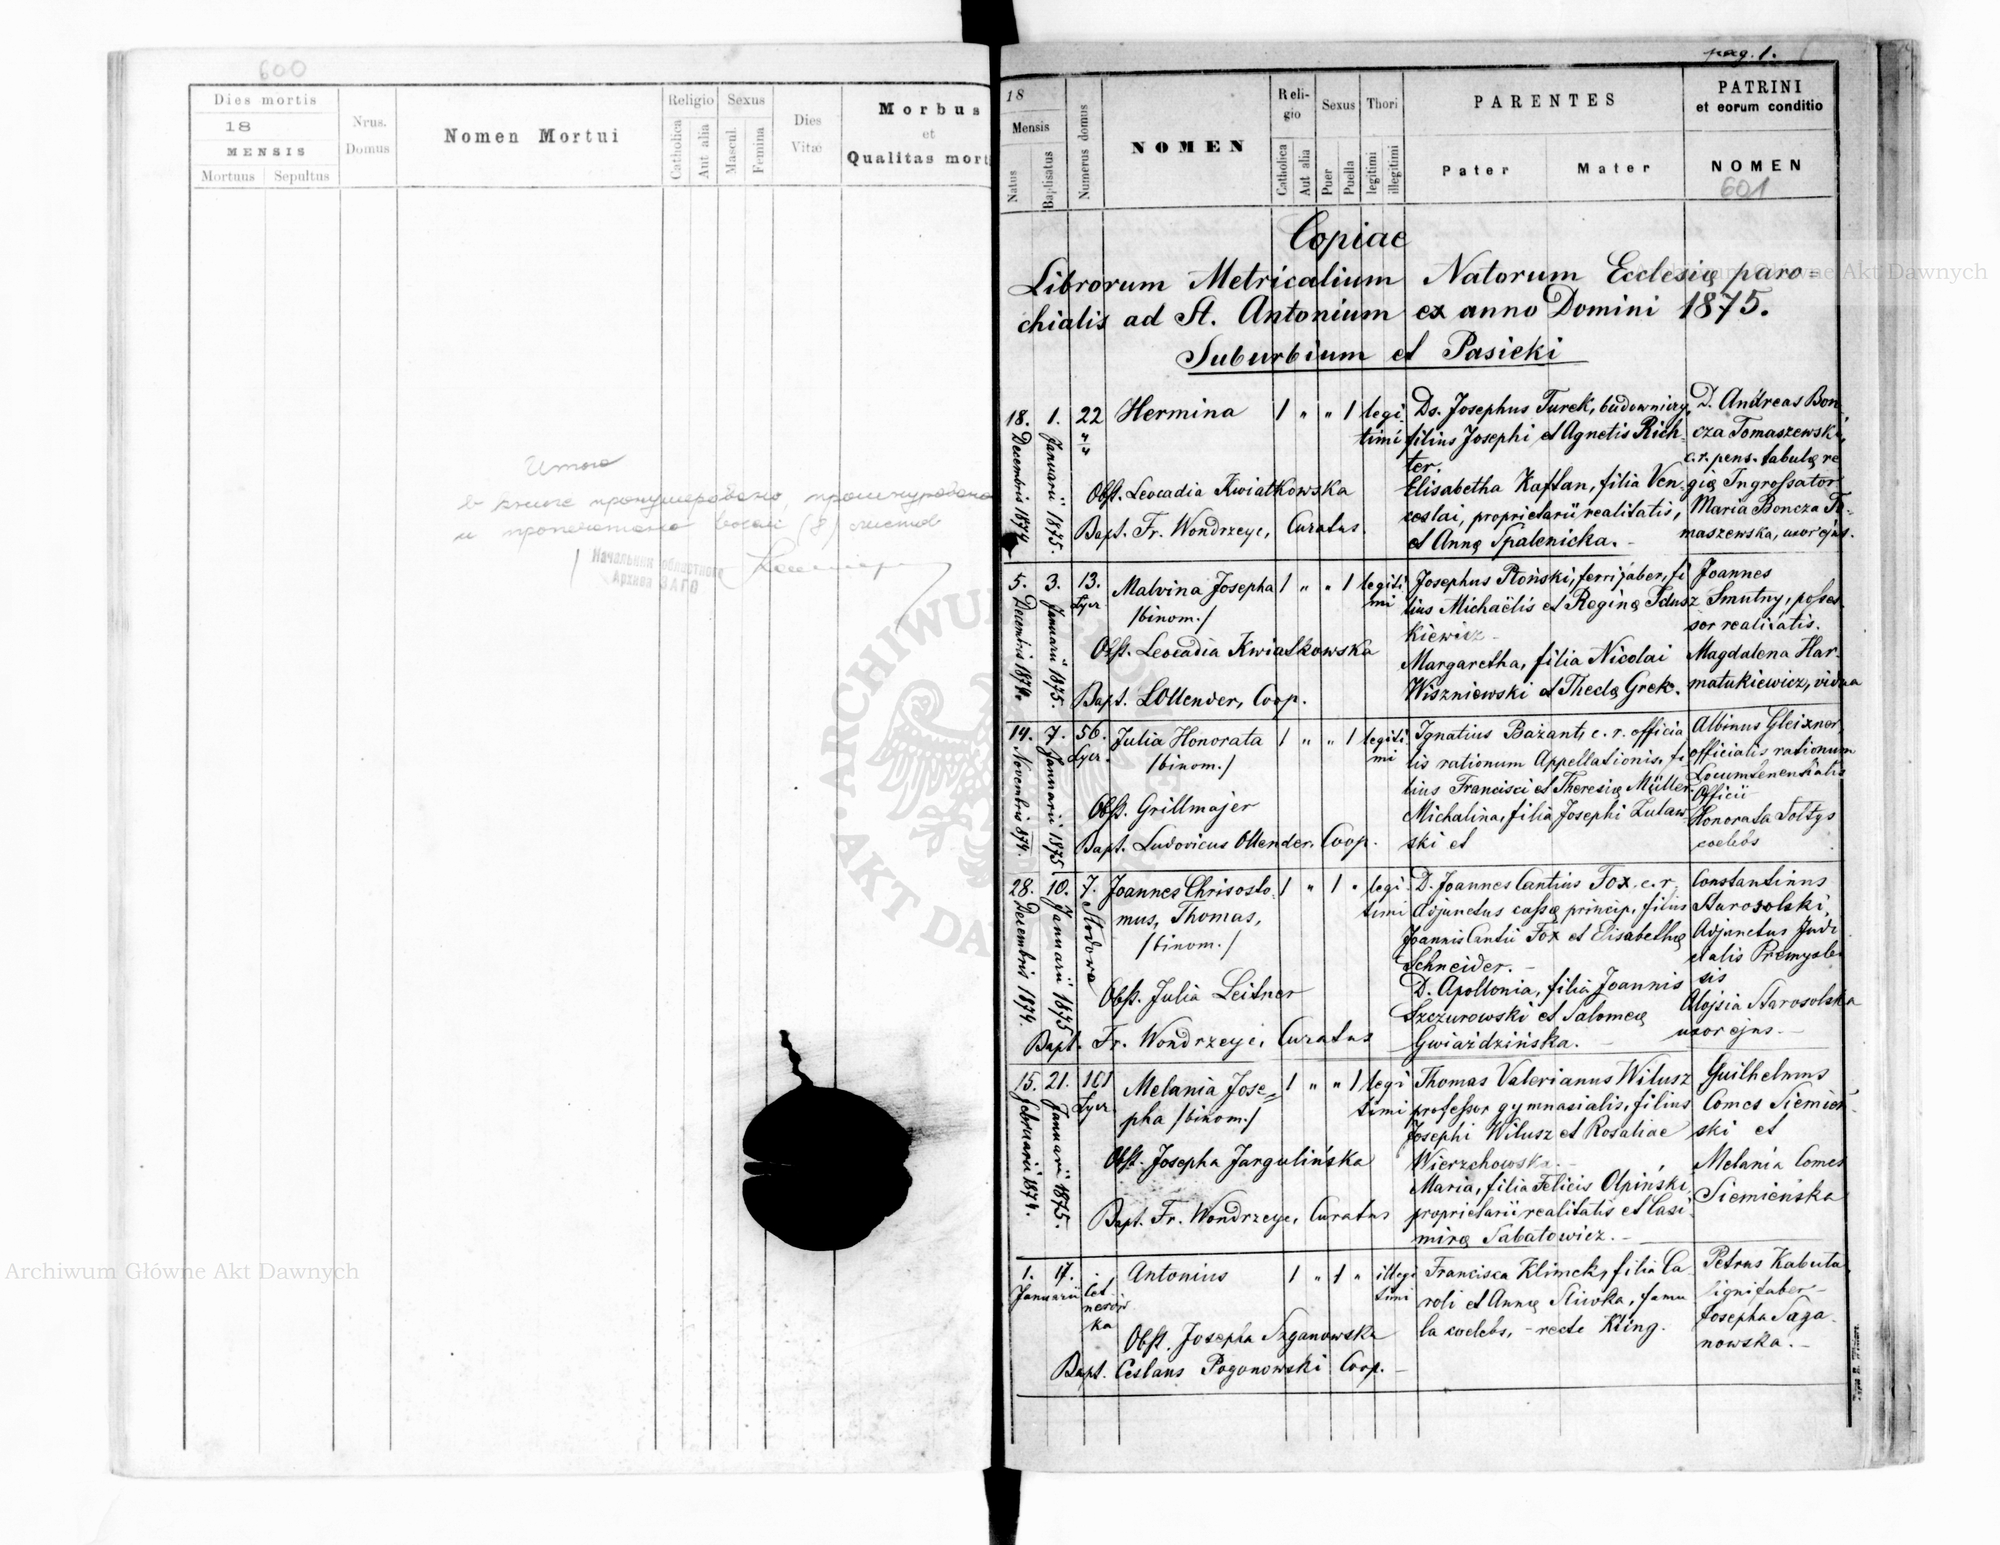 600
Dies mortis
18
MENSIS
Mortuus
Sepultus
Nrus.
Domus
Nomen Mortui
Religio
Catholica
Aut alia
Sexus
Mascul.
Femina
Dies
Vitæ
Morbus
et
Qualitas mort
Итого
в книге пронумеровано, прошнуровано
и пропечатано восемь (8) листов
Начальник областного
Архива ЗАГС
pag. 1.
18
Mensis
Natus
Baptisatus
Numerus domus
NOMEN
Reli-
gio
Catholica
Aut alia
Sexus
Puer
Puella
Thori
legitimi
illegitimi
PARENTES
Pater
Mater
PATRINI
et eorum conditio
NOMEN
601
Copiae
Librorum Metricalium Natorum Ecclesię paro-
chialis ad St. Antonium ex anno Domini 1875.
Suburbium et Pasieki
18. Decembris 1874.
1. Januarii 1875.
22 4/4
Hermina
1 " " 1 legi
timi
Obst. Leocadia Kwiatkowska
Bapt. Fr. Wondrzeye, Curatus.
Ds. Josephus Turek, budowniczy,
filius Josephi et Agnetis Rich-
ter.
Elisabetha Kaftan, filia Ven-
ceslai, proprietarii realitatis,
et Annę Spalenicka. -
D. Andreas Bon-
cza Tomaszewski,
c. r. pens. tabulę re
gię Ingrossator
Maria Boncza To-
maszewska, uxor ejus.
5. Decembris 1874.
3. Januarii 1875.
13.
Lycz.
Malvina Josepha
/binom./
1 " " 1 legiti
mi
Obst. Leocadia Kwiatkowska
Bapt. LOllender, Coop.
Josephus Płoński, ferrifaber, fi
lius Michaëlis et Reginę Idusz
kiewicz -
Margaretha, filia Nicolai
Wiszniewski et Theclę Grek.
Joannes
Smutny, posses-
sor realitatis.
Magdalena Har-
matukiewicz, vidua
14. Novembris 874.
7. Januarii 1875
56.
Lycz.
Julia Honorata
/binom./
1 " " 1 legiti
mi
Obst. Grillmajer
Bapt. Ludovicus Ollender. Coop.
Ignatius Bażant, c. r. officia
lis rationum Appellationis, fi-
lius Francisci et Theresię Müller
Michalina, filia Josephi Zulaw-
ski et
Albinus Gleixner,
officialis rationum
Locumtenentialis
Officii
Honorata Soltys
coelebs
28. Decembris 1874.
10. Januarii 1875
7. Stodowa
Joannes Chrisosto
mus, Thomas,
/binom./
1 " 1 " legi
timi
Obst. Julia Leitner
Bapt. Fr. Wondrzeye, Curatus
D. Joannes Cantius Fox. c. r.
Adjunctus cassę princip, filius
Joannis Cantii Fox et Elisabethę
Schneider. -
D. Apollonia, filia Joannis
Szczurowski et Salomeę
Gwiaździńska. -
Constantinus
Starosolski,
Adjunctus Judi
cialis Premyslen
sis
Alojsia Starosolska
uxor ejus. -
15. Februarii 1874.
21. Januarii 1875.
101
Lycz.
Melania Jose=
pha /binom./
1 " " 1 legi
timi
Obst. Josepha Jargulińska
Bapt. Fr. Wondrzeye, Curatus
Thomas Valerianus Wilusz
professor gymnasialis, filius
Josephi Wilusz et Rosaliae
Wierzchowska. -
Maria, filia Felicis Olpiński
proprietarii realitatis et Casi-
mirę Sabatowicz. -
Guilhelmus
Comes Siemień-
ski et
Melania Comes
Siemieńska
1. 17.
Januarii
Antonius
1 " 1 " illegi
timi
Obst. Josepha Saganowska
Bapt. Ceslaus Pogonowski Coop. -
Francisca Klimek, filia Ca-
roli et Annę Sliwka, famu
la coelebs, - recte Kling.
Petrus Kabuta
lignifaber -
Josepha Saga-
nowska. -
Archiwum Główne Akt Dawnych
Archiwum Główne Akt Dawnych